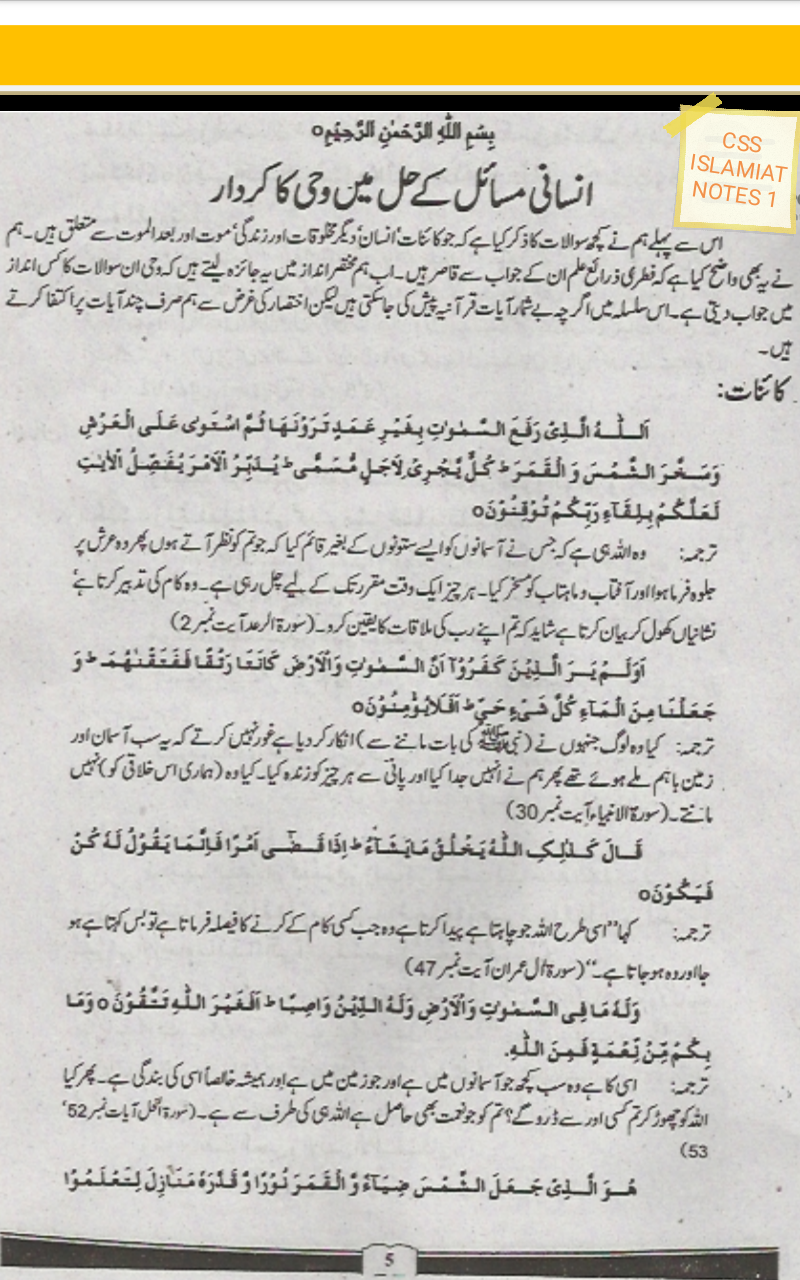 بِسْمِ اللّٰهِ الرَّحْمٰنِ الرَّحِيْمِ○
CSS
ISLAMIAT
NOTES 1
انسانی مسائل کے حل میں وحی کا کردار
اس سے پہلے ہم نے کچھ سوالات کا ذکر کیا ہے کہ جو کائنات‘ انسان‘ دیگر مخلوقات اور زندگی‘ موت اور بعد الموت سے متعلق ہیں۔ ہم
نے یہ بھی واضح کیا ہے کہ فطری ذرائع علم ان کے جواب سے قاصر ہیں۔ اب ہم مختصر انداز میں یہ جائزہ لیتے ہیں کہ وحی ان سوالات کا کس انداز
میں جواب دیتی ہے۔ اس سلسلہ میں اگر چہ بے شمار آیات قرآنیہ پیش کی جاسکتی ہیں لیکن اختصار کی غرض سے ہم صرف چند آیات پر اکتفا کرتے
ہیں۔
کائنات:
اَللّٰهُ الَّذِیْ رَفَعَ السَّمٰوٰتِ بِغَیْرِ عَمَدٍ تَرَوْنَهَا ثُمَّ اسْتَوٰی عَلَی الْعَرْشِ
وَسَخَّرَ الشَّمْسَ وَ الْقَمَرَ ؕ کُلٌّ یَّجْرِیْ لِاَجَلٍ مُّسَمًّی ؕ یُدَبِّرُ الْاَمْرَ یُفَصِّلُ الْاٰیٰتِ
لَعَلَّکُمْ بِلِقَآءِ رَبِّکُمْ تُوْقِنُوْنَ○
ترجمہ: وہ اللہ ہی ہے کہ جس نے آسمانوں کو ایسے ستونوں کے بغیر قائم کیا کہ جو تم کو نظر آتے ہوں پھر وہ عرش پر
جلوہ فرما ہوا اور آفتاب و ماہتاب کو مسخر کیا۔ ہر چیز ایک وقت مقرر تک کے لیے چل رہی ہے۔ وہ کام کی تدبیر کرتا ہے‘
نشانیاں کھول کر بیان کرتا ہے شاید کہ تم اپنے رب کی ملاقات کا یقین کرو۔ (سورۃ الرعد آیت نمبر 2)
اَوَلَمْ یَرَ الَّذِیْنَ کَفَرُوْۤا اَنَّ السَّمٰوٰتِ وَالْاَرْضَ کَانَتَا رَتْقًا فَفَتَقْنٰهُمَا ؕ وَ
جَعَلْنَا مِنَ الْمَآءِ کُلَّ شَیْءٍ حَیٍّ ؕ اَفَلَایُؤْمِنُوْنَ○
ترجمہ: کیا وہ لوگ جنہوں نے (نبی ﷺ کی بات ماننے سے) انکار کر دیا ہے غور نہیں کرتے کہ یہ سب آسمان اور
زمین باہم ملے ہوئے تھے پھر ہم نے انہیں جدا کیا اور پانی سے ہر چیز کو زندہ کیا۔ کیا وہ (ہماری اس خلاقی کو) نہیں
مانتے۔ (سورۃ الانبیاء آیت نمبر 30)
قَالَ کَذٰلِکِ اللّٰهُ یَخْلُقُ مَایَشَآءُ ؕ اِذَا قَضٰۤی اَمْرًا فَاِنَّمَا یَقُوْلُ لَهٗ کُنْ
فَیَکُوْنَ○
ترجمہ: کہا ”اسی طرح اللہ جو چاہتا ہے پیدا کرتا ہے وہ جب کسی کام کے کرنے کا فیصلہ فرماتا ہے تو بس کہتا ہے ہو
جا اور وہ ہو جاتا ہے۔“ (سورۃ اٰل عمران آیت نمبر 47)
وَلَهٗ مَا فِی السَّمٰوٰتِ وَالْاَرْضِ وَلَهُ الدِّیْنُ وَاصِبًا ؕ اَفَغَیْرَ اللّٰهِ تَتَّقُوْنَ○ وَمَا
بِکُمْ مِّنْ نِّعْمَةٍ فَمِنَ اللّٰهِ.
ترجمہ: اسی کا ہے وہ سب کچھ جو آسمانوں میں ہے اور جو زمین میں ہے اور ہمیشہ خالصاً اسی کی بندگی ہے۔ پھر کیا
اللہ کو چھوڑ کر تم کسی اور سے ڈرو گے؟ تم کو جو نعمت بھی حاصل ہے اللہ ہی کی طرف سے ہے۔ (سورۃ النحل آیات نمبر 52‘
53)
هُوَ الَّذِیْ جَعَلَ الشَّمْسَ ضِیَآءً وَّ الْقَمَرَ نُوْرًا وَّ قَدَّرَهٗ مَنَازِلَ لِتَعْلَمُوْا
5